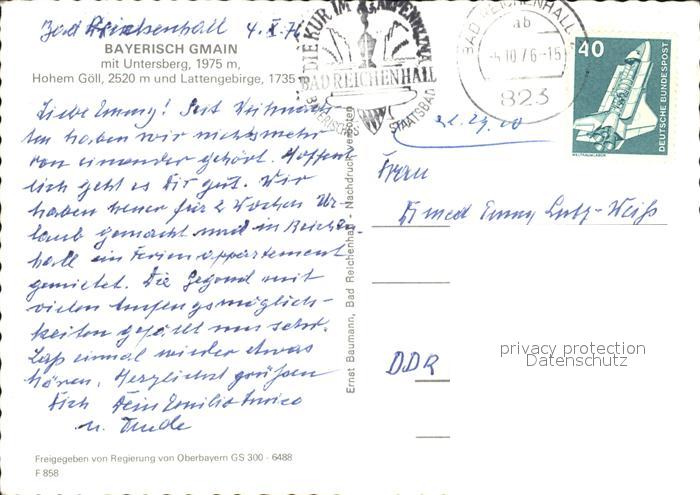 Bad Reichenhall 4. X. 76
BAYERISCH GMAIN
mit Untersberg, 1975 m,
Hohem Göll, 2520 m und Lattengebirge, 1735
Liebe Emmy! Seit Weihnach-
ten haben wir nichts mehr
von einander gehört. Hoffent-
lich geht es Dir gut. Wir
haben heuer für 2 Wochen Ur-
laub gemacht und in Reichen-
hall ein Ferienappartement
gemietet. Die Gegend mit
vielen
keiten gefällt uns sehr.
Laß einmal wieder etwas
hören. Herzlichst grüßen
Dich Dein
u. Trude
Freigegeben von Regierung von Oberbayern GS 300 - 6488
F 858
Ernst Baumann, Bad Reichenhall - Nachdruck verboten
DIE KUR IM ALPENKLIMA
BAD REICHENHALL
BAYERISCHES STAATSBAD
BAD REICHENHALL
ab
-4.10.76-15
823
40
DEUTSCHE BUNDESPOST
WELTRAUMLABOR
Frau
Dr med Emmy Lutz-Weiß
DDR
privacy protection
Datenschutz